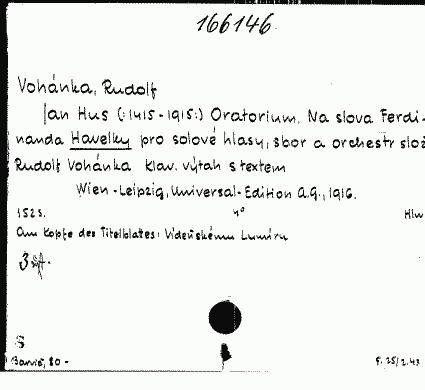 166146.
Vohánka, Rudolf
Jan Hus (:1415-1915:) Oratorium. Na slova Ferdi-
nanda Havelky pro solové hlasy, sbor a orchestr slož
Rudolf Vohánka Klav. výtah s textem
Wien-Leipzig, Universal-Edition A.G., 1916.
152 S. 4° Hlw
Am Kopfe des Titelblattes: Vídeňskému Lumíru
S
80.-